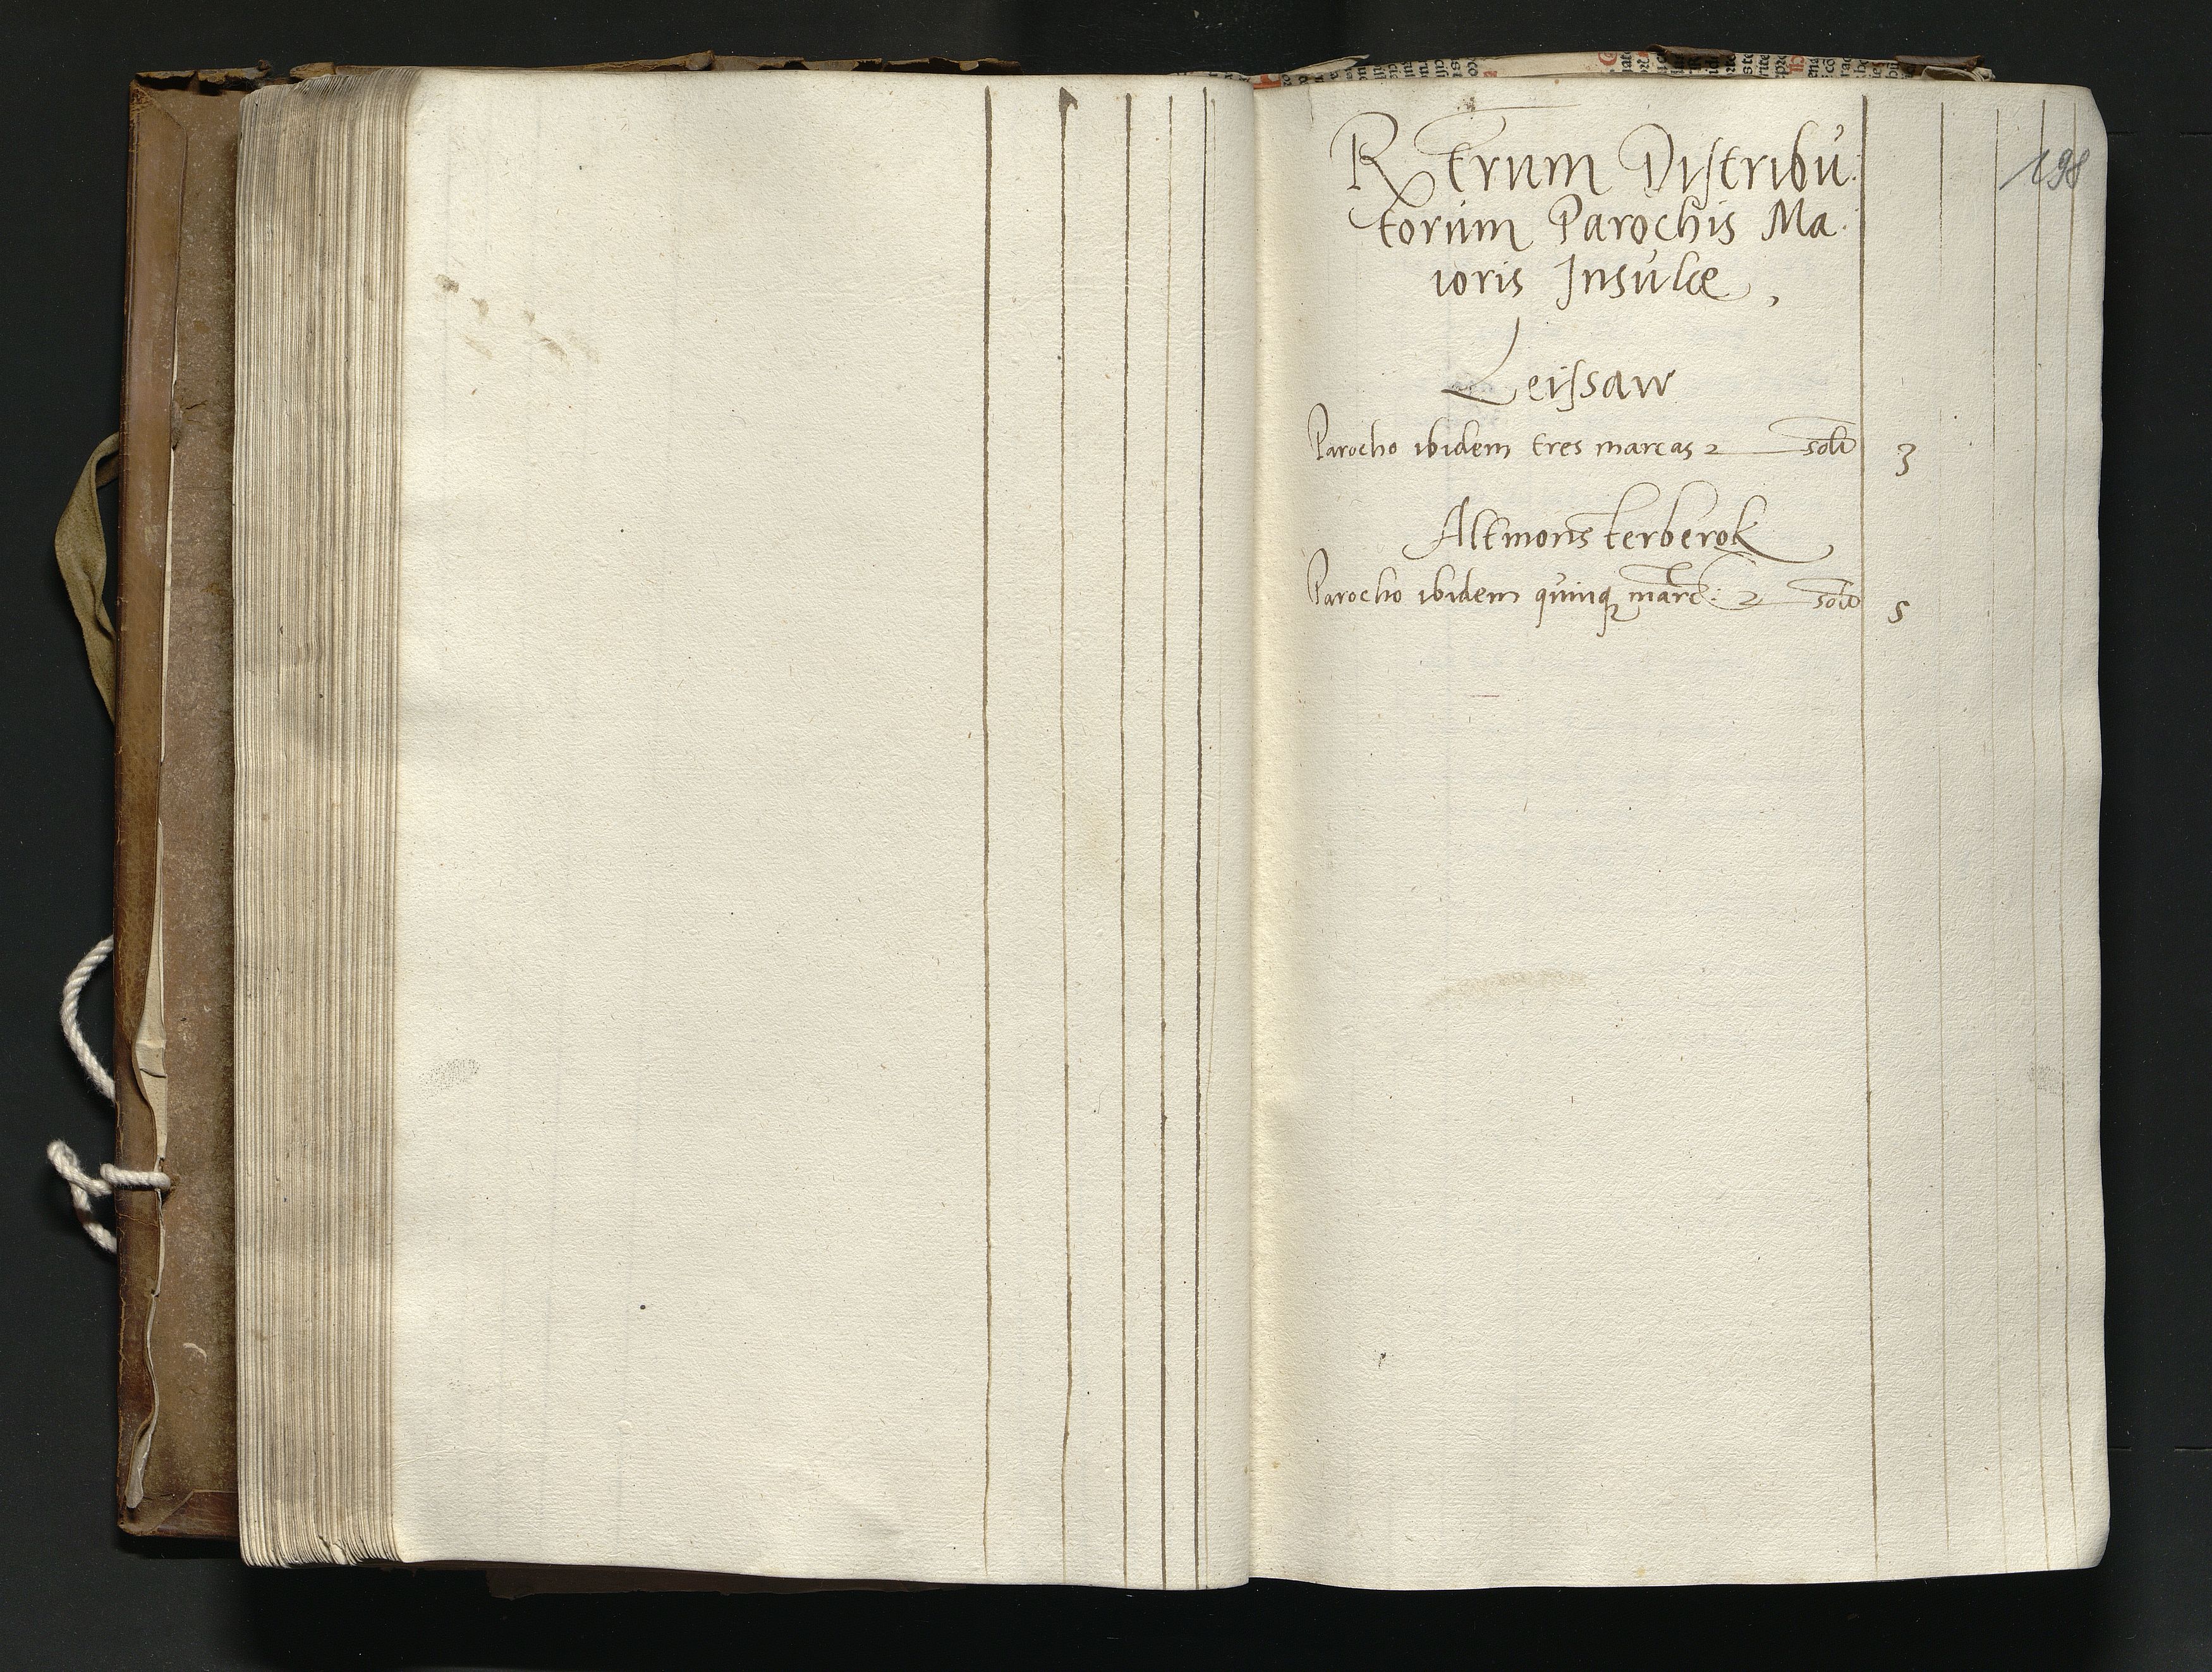 198
Rerum Distribu:
torum Parochis Ma:
ioris Insulæ,
Leissaw
Parocho ibidem tres marcas solui 3
Altmonsterberok
Parocho ibidem quinq marc: solui 5